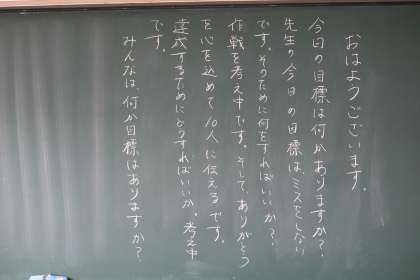 おはようございます。
今日の目標は何かありますか?
先生の今日の目標は、ミスをしない
です。そのために何をすればいいか?
作戦を考え中です。そして、ありがとう
を心を込めて10人に伝えるです。
達成するためにどうすればいいか。考え中
です。
みんなは、何か目標はありますか?